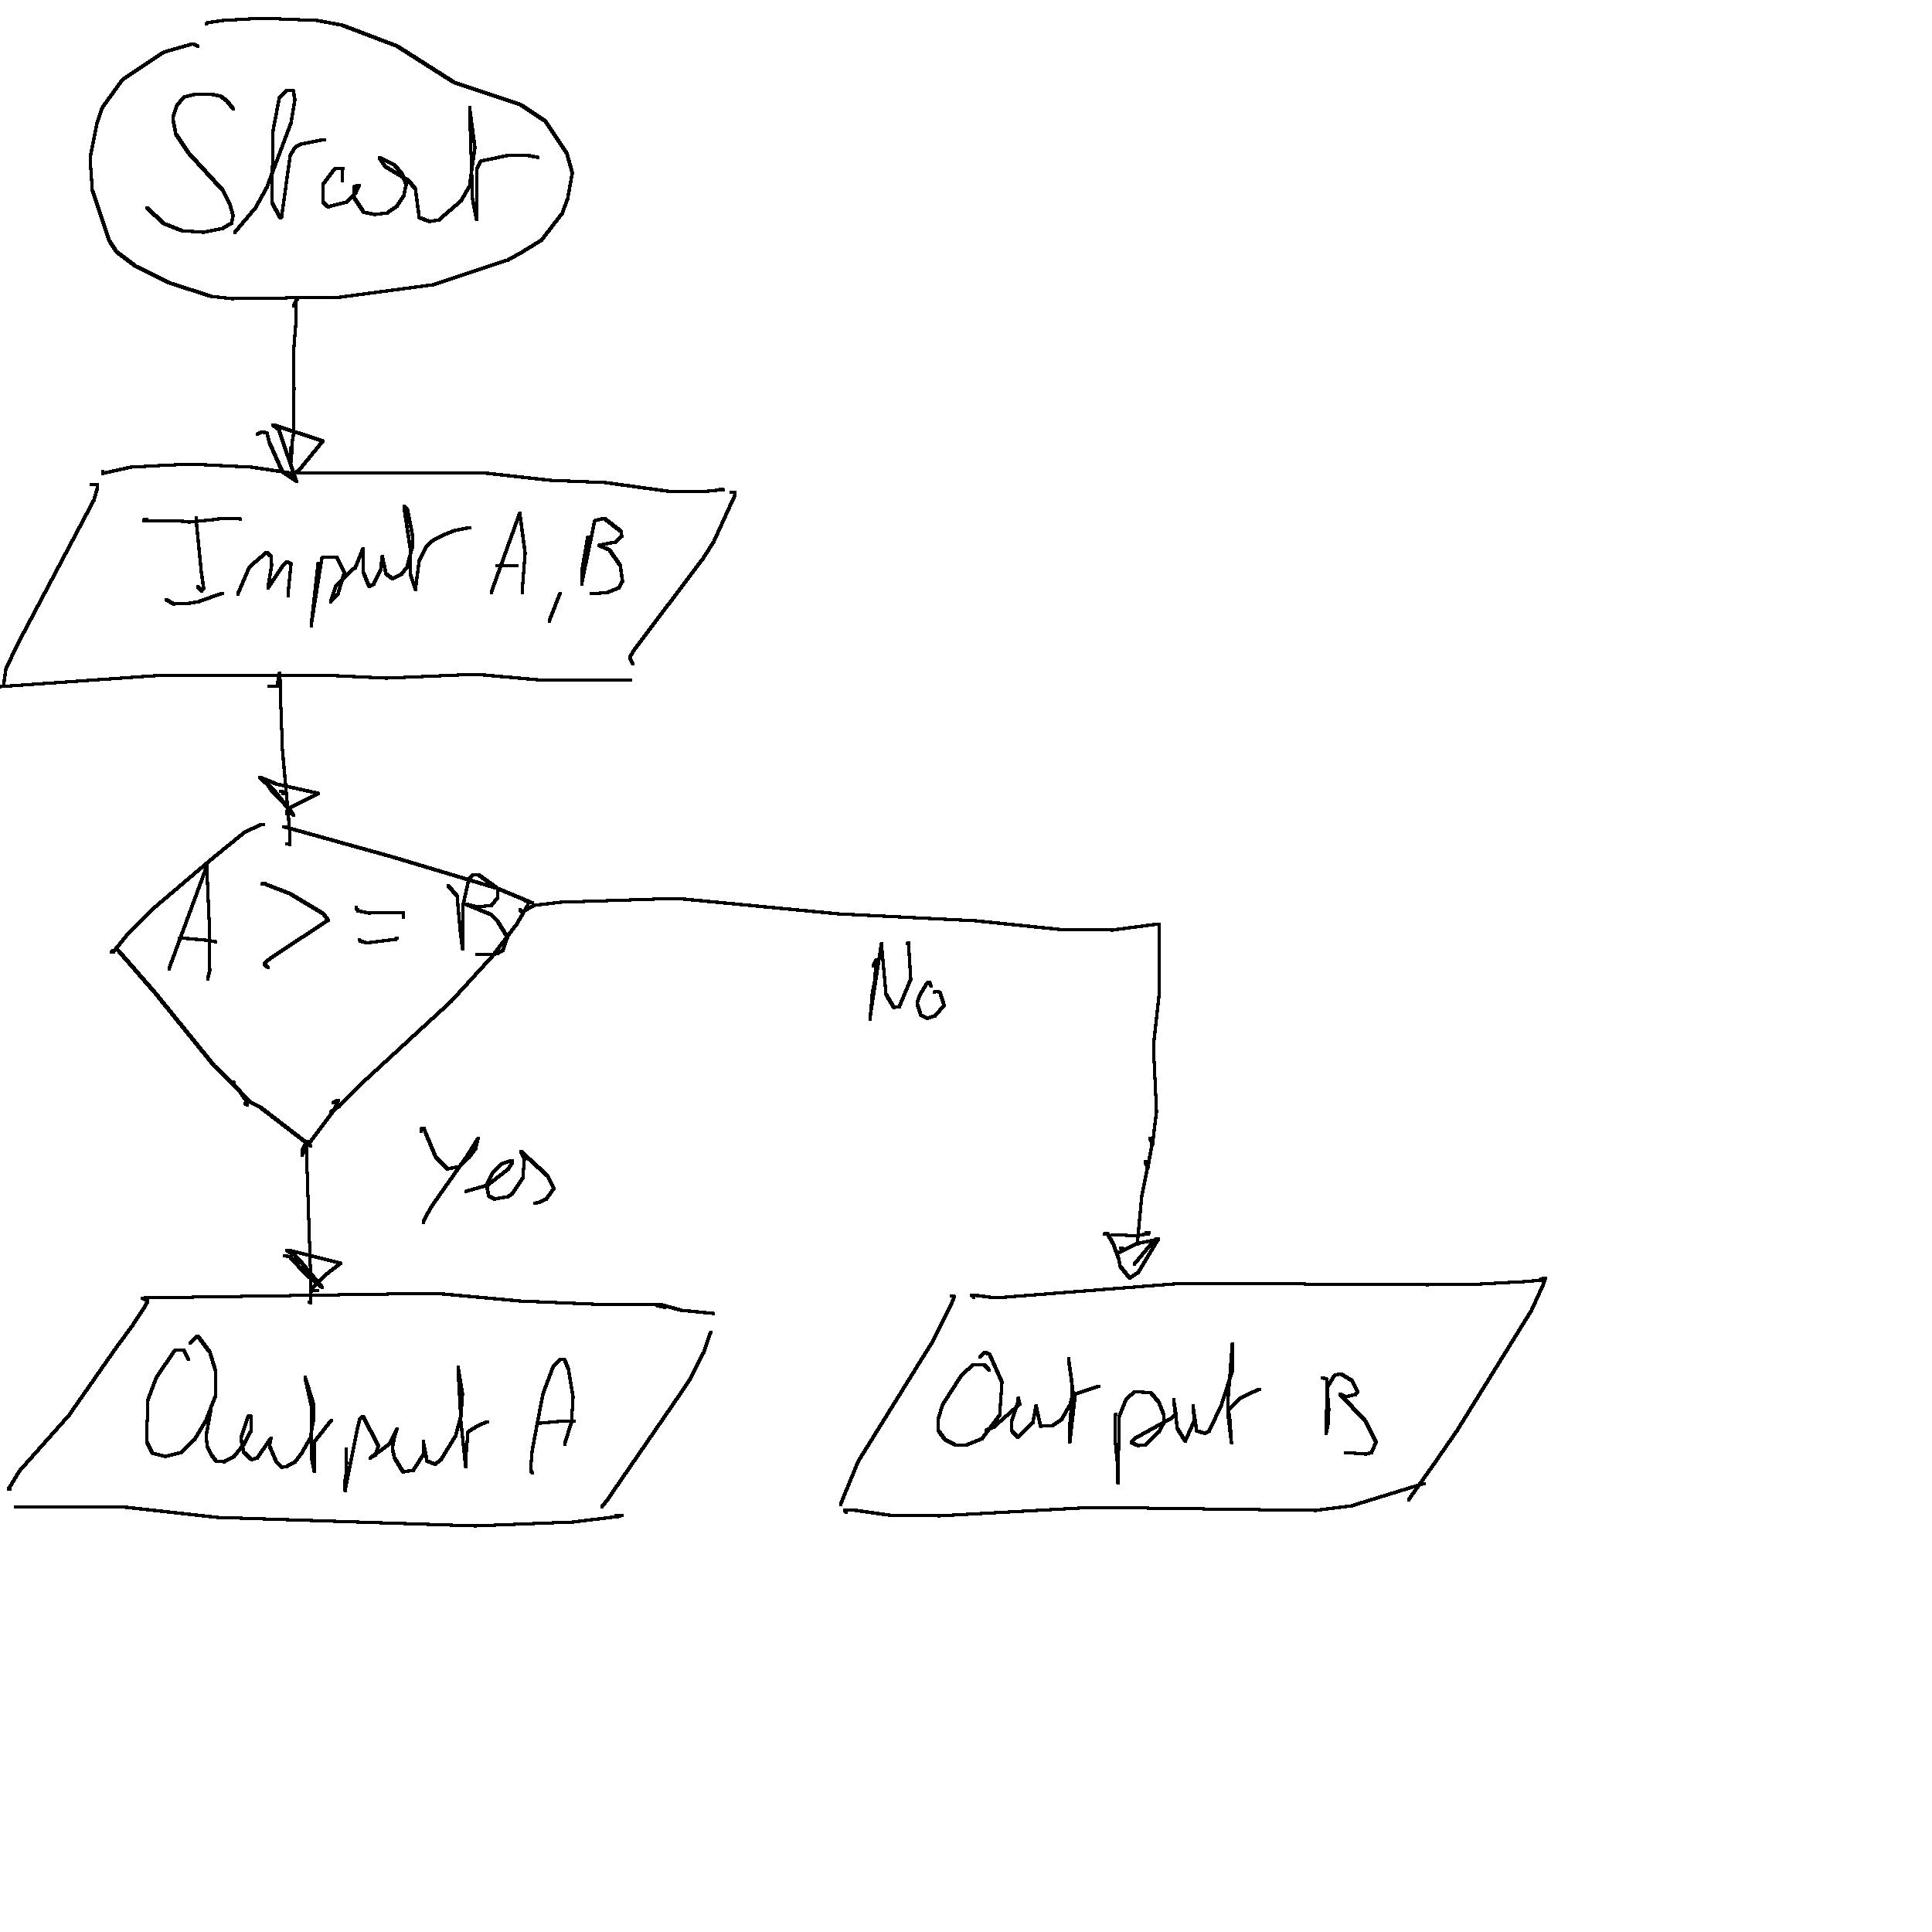 Start
Input A, B
A >= B
No
Yes
Output A
Output B